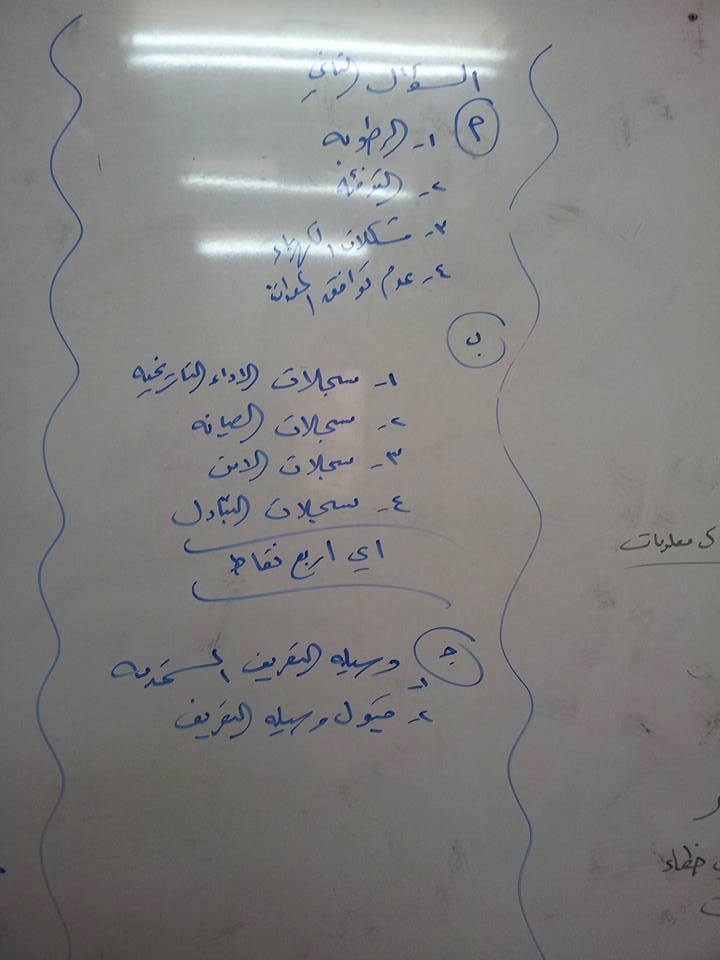 السؤال الثاني
أ
١- الرطوبه
٢- التهوئة
٣- مشكلات الكهرباء
٤- عدم توافق المعدات
ب
١- سجلات الاداء التاريخيه
٢- سجلات الصيانه
٣- سجلات الامن
٤- سجلات التبادل
اي اربع نقاط
ج
١- وسيله التعريف المستخدمه
٢- حقول وسيله التعريف
ى معلومات
خطاء